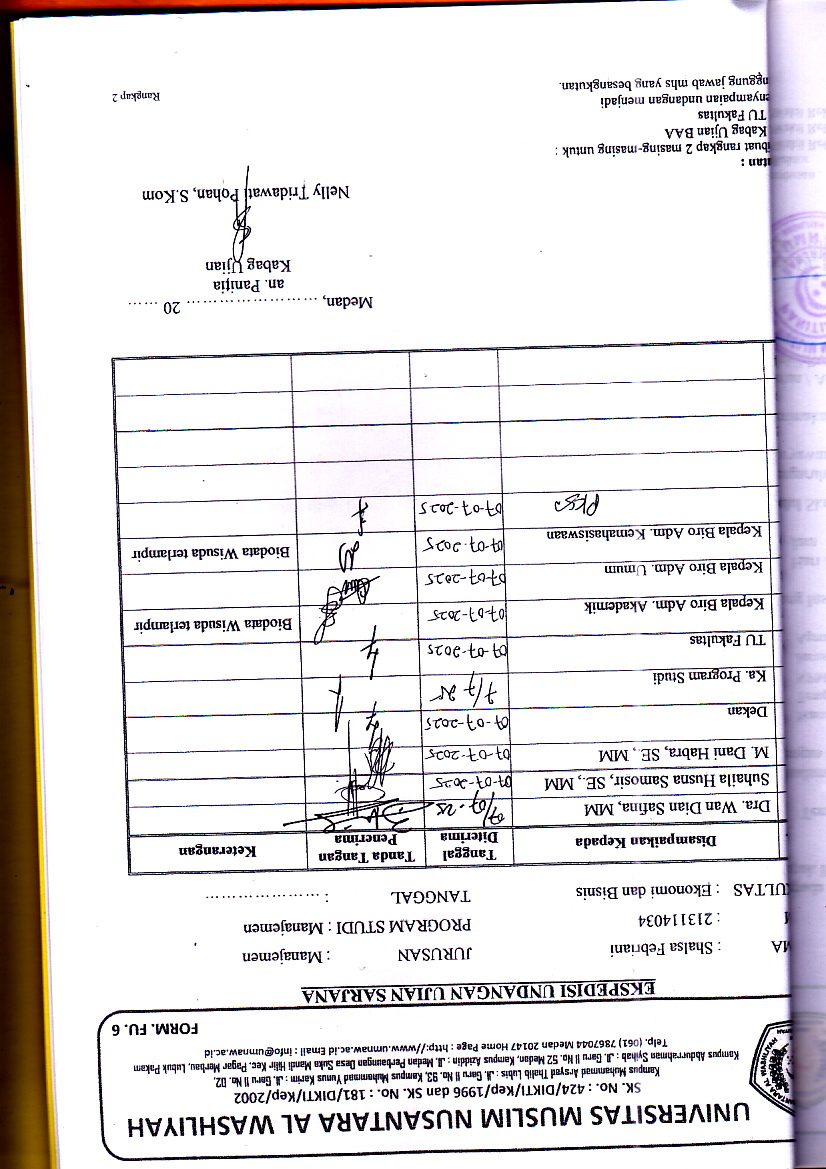 UNIVERSITAS MUSLIM NUSANTARA AL WASHLIYAH
SK. No. : 424/DIKTI/Kep/1996 dan SK. No. : 181/DIKTI/Kep/2002
Kampus Muhammad Arsyad Thalib Lubis : Jl. Garu II No. 93, Kampus Muhammad Yunus Karim : Jl. Garu II No. 02,
Kampus Abdurrahman Syihab : Jl. Garu II No. 52 Medan, Kampus Aziddin : Jl. Medan Perbaungan Desa Suka Mandi Hilir Kec. Pagar Merbau, Lubuk Pakam
Telp. (061) 7867044 Medan 20147 Home Page : http://www.umnaw.ac.id Email : info@umnaw.ac.id
FORM. FU. 6
EKSPEDISI UNDANGAN UJIAN SARJANA
MA : Shalsa Febriani JURUSAN : Manajemen
M : 213114034 PROGRAM STUDI : Manajemen
ULTAS : Ekonomi dan Bisnis TANGGAL : .....................
Disampaikan Kepada Tanggal Diterima Tanda Tangan Penerima Keterangan
Dra. Wan Dian Safina, MM 07/07-25
Suhaila Husna Samosir, SE., MM 07-07-2025
M. Dani Habra, SE., MM 07-07-2025
Dekan 07-07-2025
Ka. Program Studi 7/7 25
TU Fakultas 07-07-2025
Kepala Biro Adm. Akademik 07-07-2025 Biodata Wisuda terlampir
Kepala Biro Adm. Umum 07-07-2025
Kepala Biro Adm. Kemahasiswaan 07-07-2025 Biodata Wisuda terlampir
07-07-2025
Medan, ........................ 20 ......
an. Panitia
Kabag Ujian
Nelly Tridawati Pohan, S.Kom
atan :
ibuat rangkap 2 masing-masing untuk :
Kabag Ujian BAA
TU Fakultas
enyampaian undangan menjadi
nggung jawab mhs yang besangkutan.
Rangkap 2